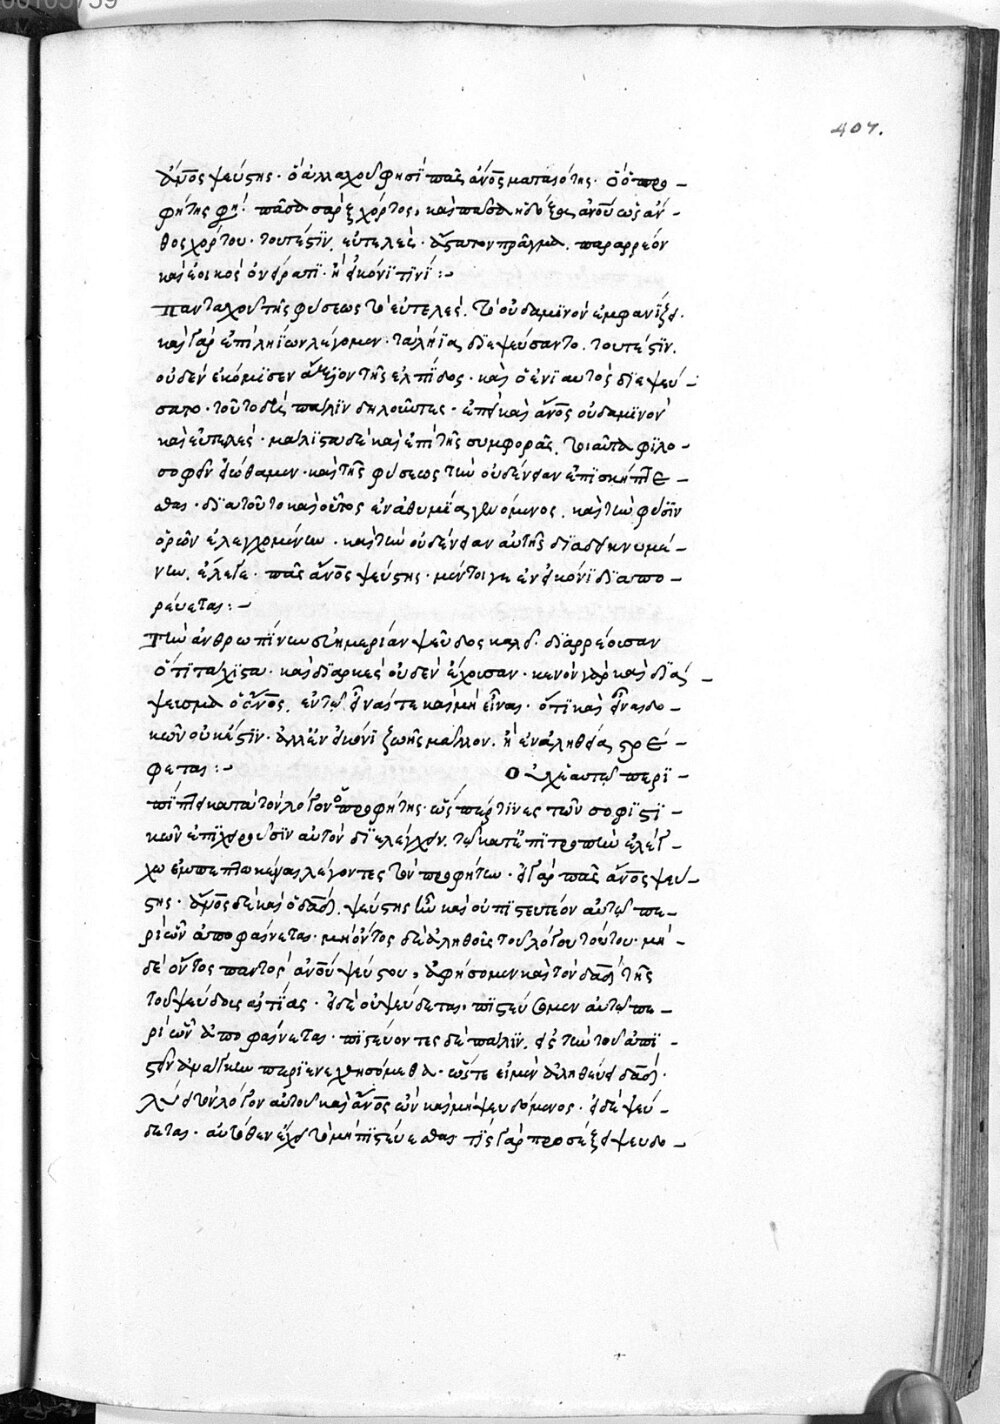 407.
ἄνος ψεύστης · ὃ ἀλλαχοῦ φησὶ πᾶς ἄνος ματαιότης · ὃ ὁ προ –
φήτης φη · πᾶσα σὰρξ χόρτος, καὶ πᾶσα ἡ δόξα ἀνοῦ ὡς ἄν –
θος χόρτου · τουτέστιν, εὐτελὲς ἄστατον πρᾶγμα, παραρρέον
καὶ ἐοικὸς ὀνείρατι · ἢ εἰκόνι τινί :–
Πανταχοῦ τῆς φύσεως τὸ εὐτελές, τὸ οὐδαμινὸν ἐμφανίζει ·
καὶ γὰρ ἐπὶ ληΐων λέγομεν · τὰ λήϊα διεψεύσαντο, τουτέστιν,
οὐδὲν ἐκόμισεν ἄξιον τῆς ἐλπίδος · καὶ ὁ ἐνιαυτὸς διεψεύ –
σατο · τοῦτο δὲ πάλιν δηλοῦντες · ἐπεὶ καὶ ἄνος οὐδαμινὸν
καὶ εὐτελές · μάλιστα δὲ καὶ ἐπὶ τῆς συμφορᾶς, τοιαῦτα φιλο –
σοφεῖν εἰώθαμεν · καὶ τῆς φύσεως τὴν οὐδένειαν ἐπισκήπτε –
σθαι · διὰ τοῦτο καὶ οὗτος ἐν ἀθυμίᾳ γενόμενος, καὶ τὴν φύσιν
ὁρῶν ἐλεγχομένην · καὶ τὴν οὐδένειαν αὐτῆς διαδεικνυμέ –
νην, ἔλεγε · πᾶς ἄνος ψεύστης · μέντοιγε ἐν εἰκόνι διαπο –
ρεύεται :–
Τὴν ἀνθρωπίνην εὐημερίαν ψεῦδος καλεῖ · διαρρέουσαν
ὅτι τάχιστα · καὶ διαρκὲς οὐδὲν ἔχουσαν · κενὸν γὰρ καὶ διά –
ψευσμα ὁ ἄνος, ἐν τῷ εἶναί τε καὶ μὴ εἶναι · ὅτι καὶ εἶναι δο –
κῶν οὐκ ἔστιν · ἀλλ' ἐν εἰκόνι ζωῆς μᾶλλον, ἢ ἐν ἀληθείᾳ στρέ –
φεται :– Οὐχὶ ἑαυτῷ περι –
πίπτει κατὰ τὸν λόγον ὁ προφήτης · ὥσπέρ τινες τῶν σοφιστι
κῶν ἐπιχειροῦσιν αὐτὸν διελέγχειν, τῷ κατεπιτροπὴν ἐλέγ –
χῳ ἐμπεπτωκέναι λέγοντες τὸν προφήτην · εἰ γὰρ πᾶς ἄνος ψεύ –
στης · ἄνος δὲ καὶ ὁ δαδ, ψεύστης ἦν καὶ οὐ πιστευτέον αὐτῷ πε –
ρὶ ὧν ἀποφαίνεται · μὴ ὄντος δὲ ἀληθοῦς τοῦ λόγου τούτου · μη –
δὲ ὄντος παντὸς ἀνοῦ ψεύστου, ἀφήσομεν καὶ τὸν δαδ τῆς
τοῦ ψεύδους αἰτίας · εἰ δὲ οὐ ψεύδεται, πιστεύσωμεν αὐτῷ πε –
ρὶ ὧν ἀποφαίνεται · πιστεύοντες δὲ πάλιν, εἰς τὴν τοῦ ἀπι
στεῖν ἀνάγκην περιενεχθησόμεθα · ὥστε εἰ μὲν ἀληθεύει δαδ ·
λύει τὸν λόγον αὐτοῦ καὶ ἄνος ὢν καὶ μὴ ψευδόμενος · εἰ δὲ ψεύ –
δεται · αὐτόθεν ἔχει τὸ μὴ πιστεύεσθαι τίς γὰρ προσέξει ψευδο –